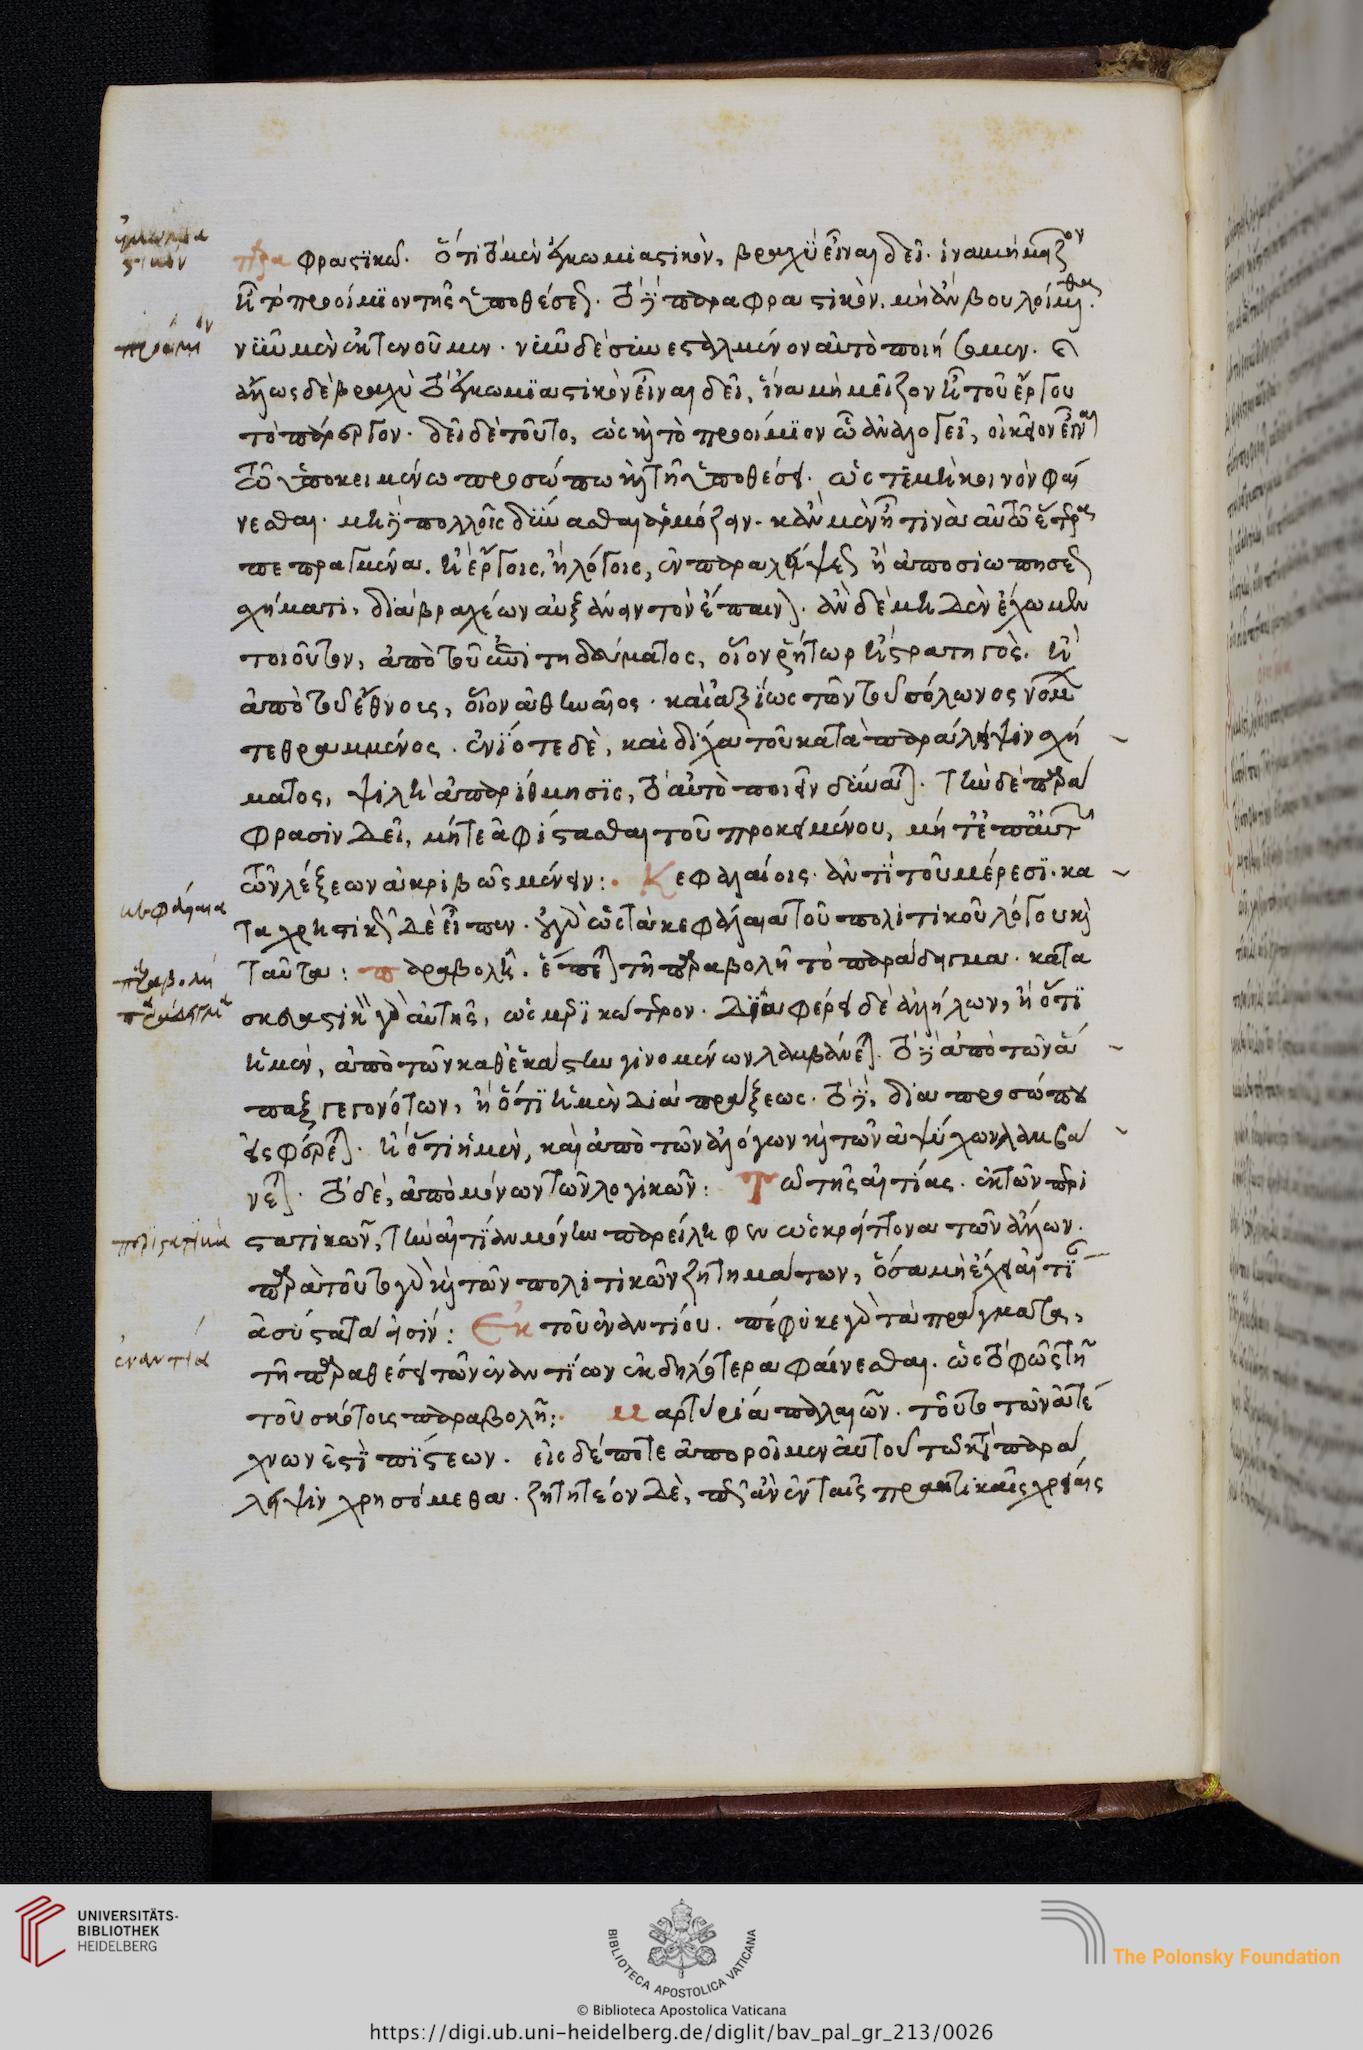 παραφραστικῶ. ὅτι τὸ μὲν ἐγκωμιαστικὸν, βραχὺ εἶναι δεῖ. ἵνα μὴ μεῖζον
ἦ τὸ προοίμιον τῆς ὑποθέσεως. τὸ δὲ παραφραστικὸν, μὴ ἂν βουλοίμεθα.
νῦν μὲν ἐκτενοῦμεν. νῦν δὲ συνεσταλμένον αὐτὸ ποιήσομεν.
ἄλλως δὲ βραχὺ τὸ ἐγκωμιαστικὸν εἶναι δεῖ, ἵνα μὴ μεῖζον ἦ τοῦ ἔργου
τὸ πάρεργον. δεῖ δὲ τοῦτο, ὡς καὶ τὸ προοίμιον ὧ ἀναλογεῖ, οἰκεῖον εἶναι
τῶ ὑποκειμένω προσώπω καὶ τῆ ὑποθέσει. ὡς τε μὴ κοινὸν φαί
νεσθαι. μὴ δὲ πολλοῖς δύνασθαι ἁρμόζειν. κἂν μὲν ἦ τινὰ αὐτῶ ἕτερα
πεπραγμένα. ἢ ἔργοις, ἢ λόγοις, ἐν παραλήψεως ἢ ἀποσιωπήσεως
σχήματι, διὰ βραχέων αὐξάνειν τὸν ἔπαινον. ἂν δὲ μηδὲν ἔχωμεν
τοιοῦτον, ἀπὸ τοῦ ἐπιτηδεύματος, οἷον ῥήτωρ ἢ στρατηγός. ἢ
ἀπὸ τοῦ ἔθνους, οἷον ἀθηναῖος. καὶ ἀξίως τῶν τοῦ σόλωνος νόμων
τεθραμμένος. ἐνίοτε δὲ, καὶ δίχα τοῦ κατὰ παράληψιν σχή
ματος, ψιλὴ ἀπαρίθμησις, τὸ αὐτὸ ποιεῖν δύναται. τὴν δὲ παρά
φρασιν δεῖ, μήτε ἀφίστασθαι τοῦ προκειμένου, μήτε
τῶν λέξεων ἀκριβῶς μένειν: Κεφαλαίοις. ἀντὶ τοῦ μέρεσι. κα
ταχρηστικῶς δὲ εἶπεν. οὐ γὰρ ὡς τὰ κεφάλαια τοῦ πολιτικοῦ λόγου καὶ
ταῦτα: παραβολῆ. ἕπεται τῆ παραβολῆ τὸ παράδειγμα. κατα
σκευαστικὴ γὰρ αὐτῆς, ὡς μερικώτερον. διαφέρει δὲ ἀλλήλων, ἢ ὅτι
ἡ μὲν, ἀπὸ τῶν καθ' ἑκάστην γινομένων λαμβάνεται. τὸ δὲ ἀπὸ τῶν ἅ
παξ γεγονότων, ἢ ὅτι ἡ μὲν διὰ πράξεως. τὸ δὲ, διὰ προσώπου
εἰσφέρεται. ἢ ὅτι ἡ μὲν, καὶ ἀπὸ τῶν ἀλόγων καὶ τῶν ἀψύχων λαμβά
νεται. τὸ δὲ, ἀπὸ μόνων τῶν λογικῶν: Τῶ τῆς αἰτίας. ἐκ τῶν περι
στατικῶν, τὴν αἰτίαν μόνην παρείληφεν ὡς κρείττονα τῶν ἄλλων.
παρὰ τοῦτο γὰρ καὶ τῶν πολιτικῶν ζητημάτων, ὅσα μὴ ἔχει αἰτίαν
ἀσύστατά εἰσιν: Ἐκ τοῦ ἐναντίου. πέφυκε γὰρ τὰ πράγματα,
τῆ παραθέσει τῶν ἐναντίων ἐκδηλότερα φαίνεσθαι. ὡς τὸ φῶς τῆ
τοῦ σκότους παραβολῆ: μαρτυρία παλαιῶν. τοῦτο τῶν ἀτέ
χνων ἐστὶ πίστεων. εἰ δέ ποτε ἀποροῖμεν αὐτοῦ τῶ κατὰ παρά
ληψιν χρησόμεθα. ζητητέον δὲ, πῶς ἂν ἐν ταῖς πρακτικαῖς χρείαις
ἐγκωμια
στικόν
προοίμιον
κεφάλαια
παραβολή
παράδειγμα
περιστατικὰ
ἐναντία
UNIVERSITÄTS-
BIBLIOTHEK
HEIDELBERG
BIBLIOTECA APOSTOLICA VATICANA
© Biblioteca Apostolica Vaticana
The Polonsky Foundation
https://digi.ub.uni-heidelberg.de/diglit/bav_pal_gr_213/0026